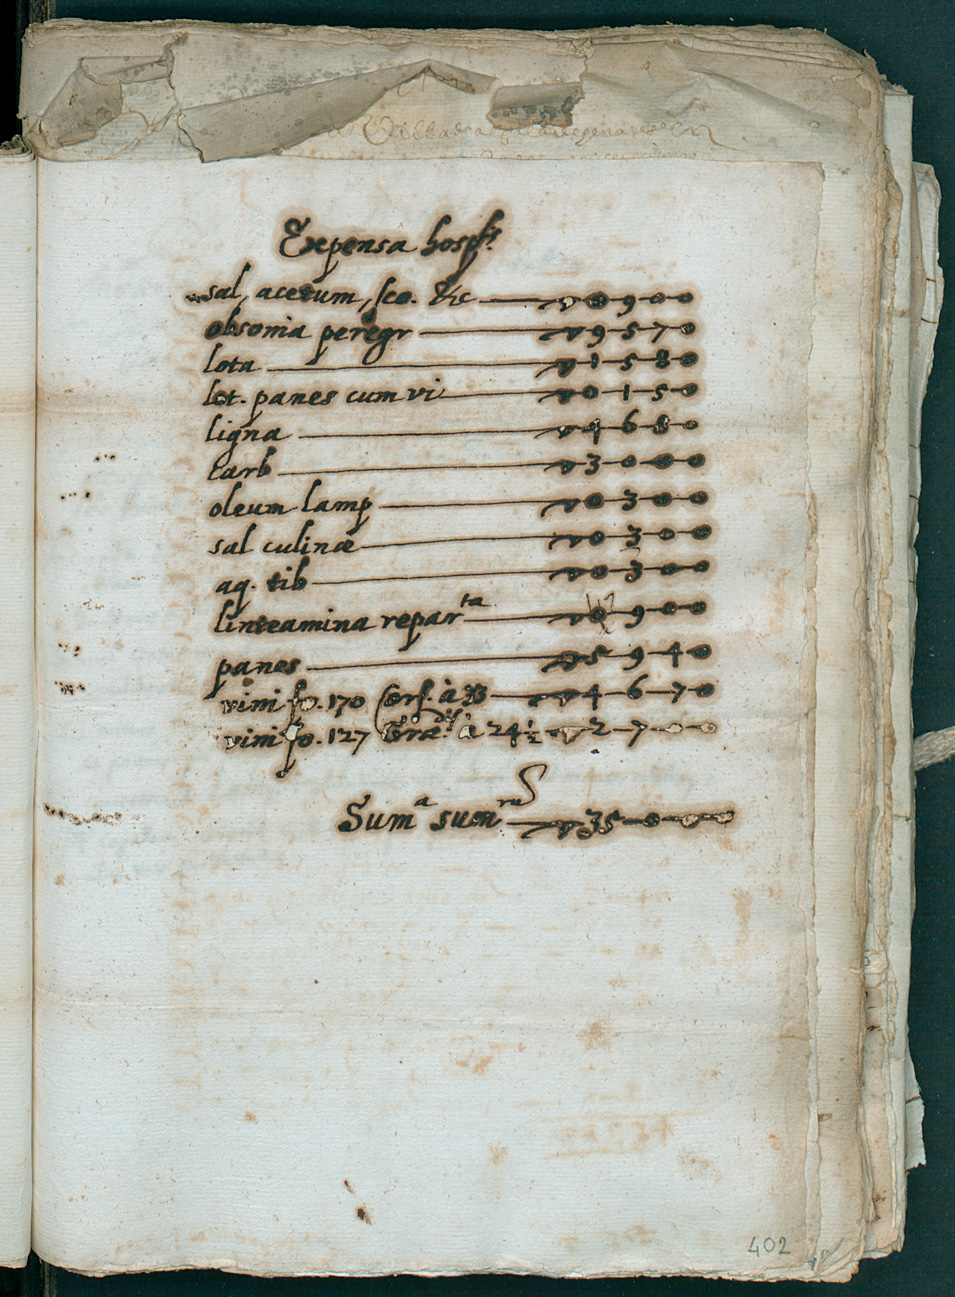 Expensa hospis.
sal, acetum, sco. &c v0900
obsonia peregr v9570
lota v1580
lot. panes cum vi v0150
ligna v4680
carb v3000
oleum lamp v0300
sal culinae v0300
aq. tib v0300
linteamina repar.ta v0900
panes v5940
vini fo. 170 à v4670
vini fo. 127 Graec. à 24½ v2700
Sum.a sum.ru v35000
402